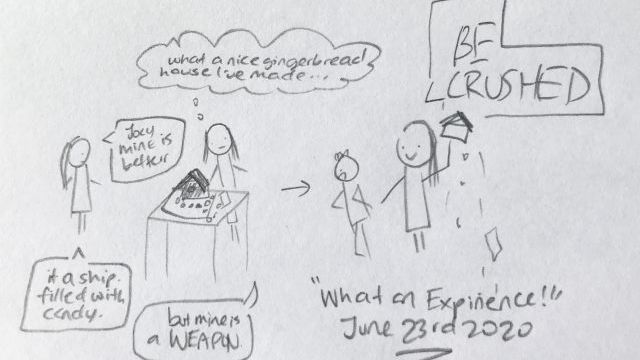 what a nice gingerbread
house I've made...
Joey
mine is
better
it a ship.
filled with
candy.
but mine is
a WEAPON.
BE
CRUSHED
"What an Expirience!"
June 23rd 2020